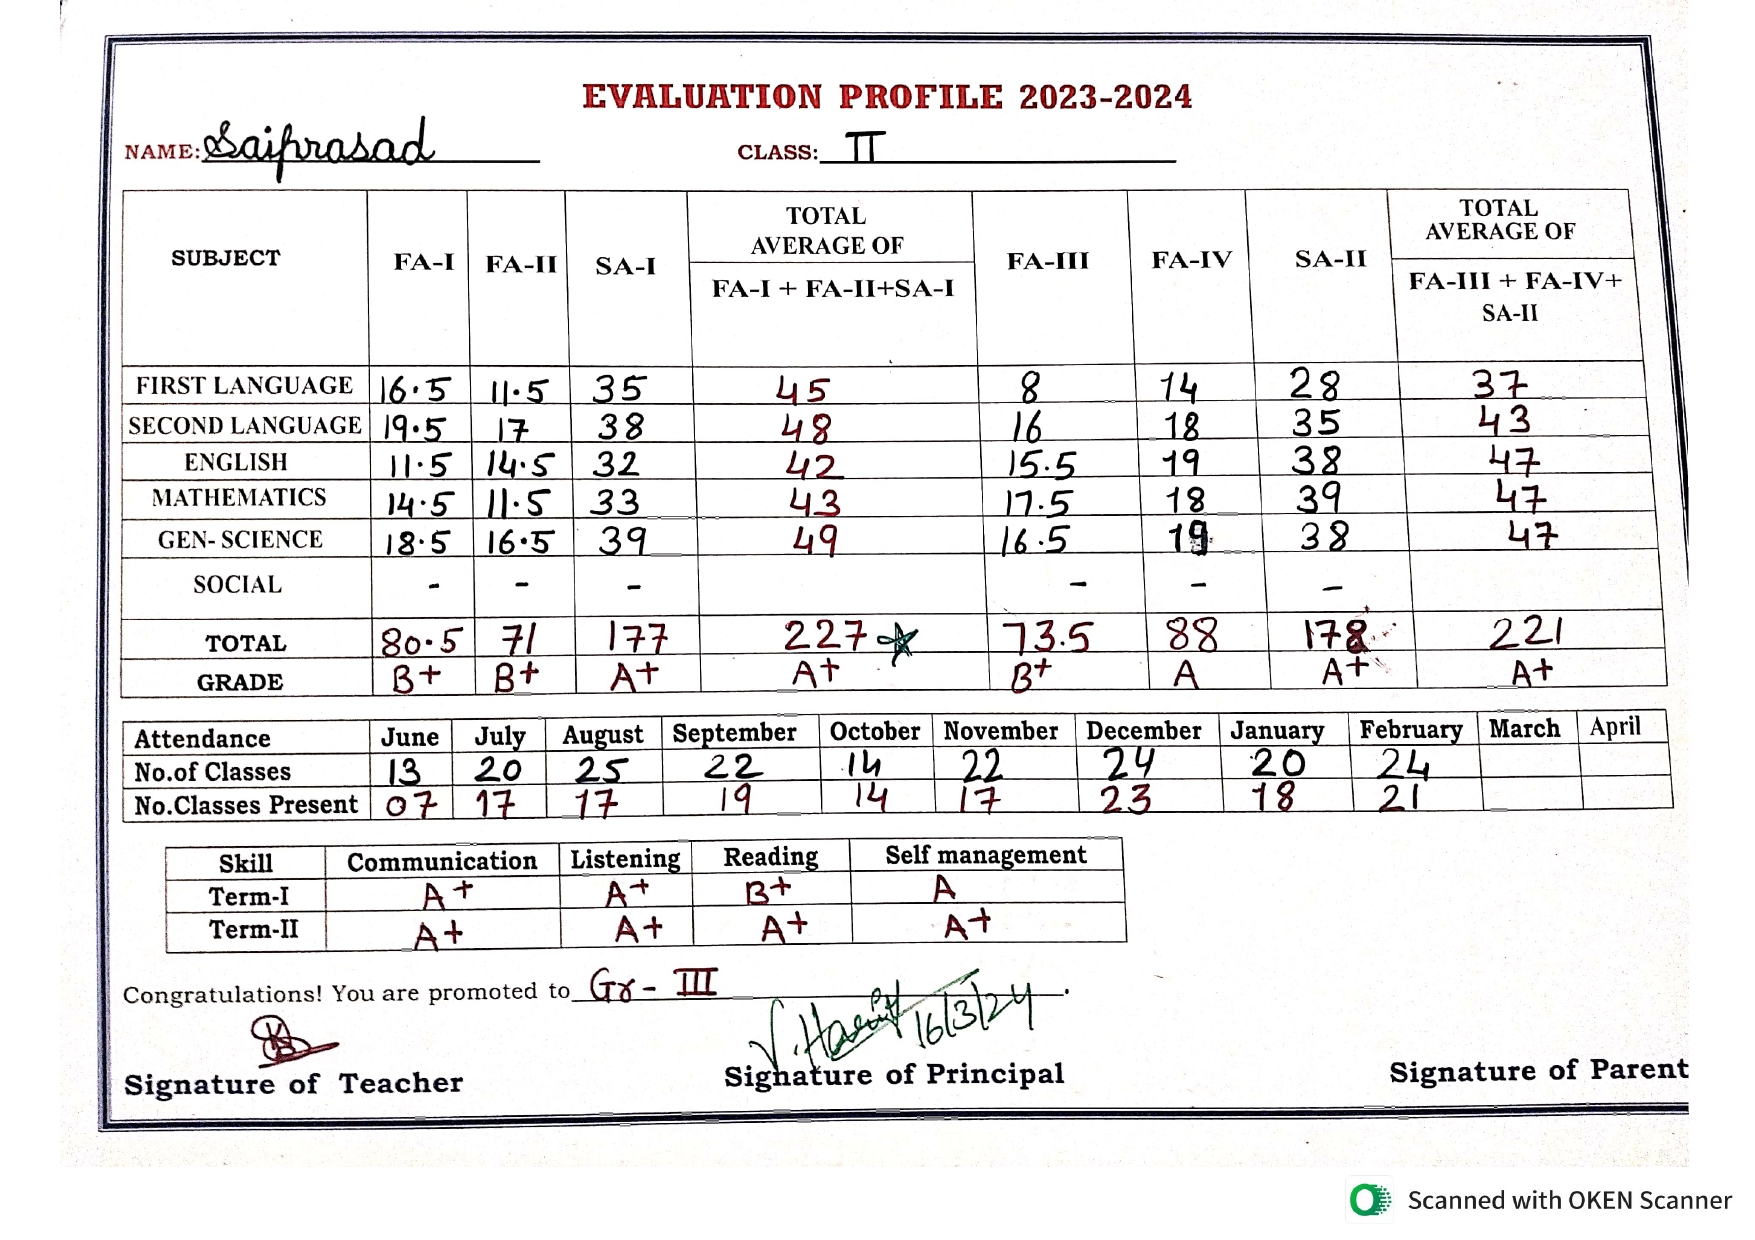 EVALUATION PROFILE 2023-2024
NAME: Saiprasad CLASS: II
SUBJECT FA-I FA-II SA-I TOTAL AVERAGE OF FA-I + FA-II+SA-I FA-III FA-IV SA-II TOTAL AVERAGE OF FA-III + FA-IV+ SA-II
FIRST LANGUAGE 16.5 11.5 35 45 8 14 28 37
SECOND LANGUAGE 19.5 17 38 48 16 18 35 43
ENGLISH 11.5 14.5 32 42 15.5 19 38 47
MATHEMATICS 14.5 11.5 33 43 17.5 18 39 47
GEN- SCIENCE 18.5 16.5 39 49 16.5 19 38 47
SOCIAL - - - - - -
TOTAL 80.5 71 177 227 73.5 88 178 221
GRADE B+ B+ A+ A+ B+ A A+ A+
Attendance June July August September October November December January February March April
No.of Classes 13 20 25 22 14 22 24 20 24
No.Classes Present 07 17 17 19 14 17 23 18 21
Skill Communication Listening Reading Self management
Term-I A+ A+ B+ A
Term-II A+ A+ A+ A+
Congratulations! You are promoted to Gr - III .
16/3/24
Signature of Teacher Signature of Principal Signature of Parent
Scanned with OKEN Scanner